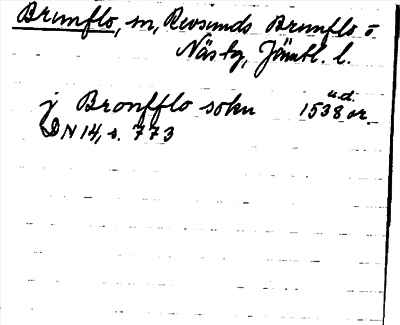 Brunflo, sn, Revsunds Brunflo o
Näs tg, Jämtl. l.
j Bronfflo sokn 1538 u.d. or.
DN 14, s. 773